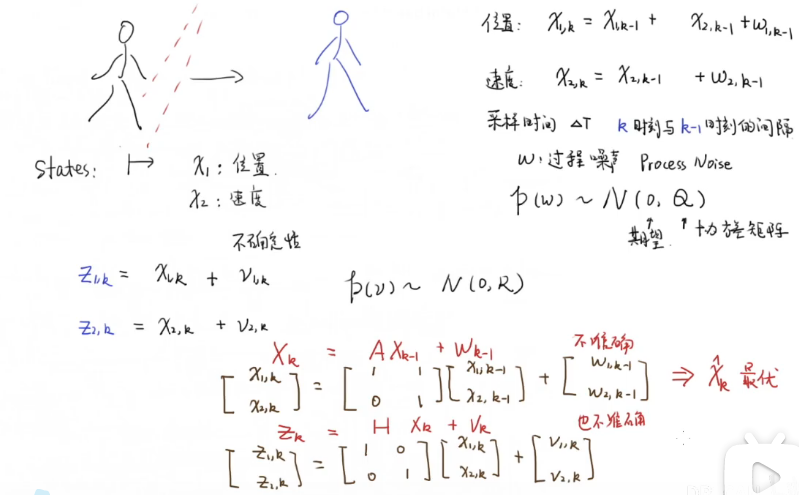 位置: X₁,k = X₁,k-1 + X₂,k-1 + W₁,k-1
速度: X₂,k = X₂,k-1 + W₂,k-1
采样时间 ΔT k时刻与k-1时刻的间隔
W: 过程噪声 Process Noise
P(w) ~ N(0, Q)
期望 ↑ ↑ 协方差矩阵
States: X₁: 位置.
X₂: 速度
不确定性
Z₁,k = X₁,k + V₁,k
P(v) ~ N(0, R)
Z₂,k = X₂,k + V₂,k
Xk = A Xk-1 + Wk-1 不准确
[X₁,k X₂,k] = [1 1 0 1] [X₁,k-1 X₂,k-1] + [W₁,k-1 W₂,k-1] ⇒ X̂k 最优
Zk = H Xk + Vk 也不准确
[Z₁,k Z₂,k] = [1 0 0 1] [X₁,k X₂,k] + [V₁,k V₂,k]